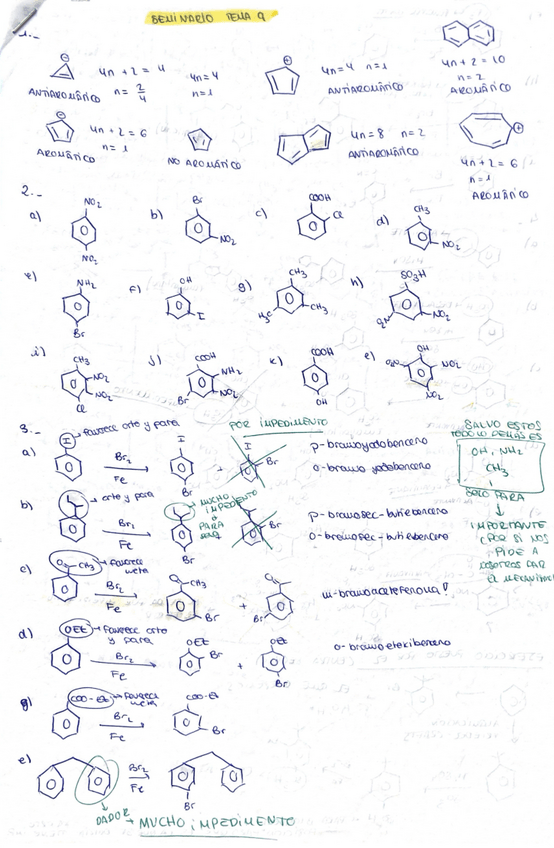 SEMINARIO TEMA 9
1.-
4n + 2 = 4
n = 2/4
4n = 4
n = 1
ANTIAROMÁTICO
4n = 4 n = 1
ANTIAROMÁTICO
4n + 2 = 10
n = 2
AROMÁTICO
4n + 2 = 6
n = 1
AROMÁTICO
NO AROMÁTICO
4n = 8 n = 2
ANTIAROMÁTICO
4n + 2 = 6
n = 1
AROMÁTICO
2.-
a) NO₂ NO₂
b) Br NO₂
c) COOH Cl
d) CH₃ NO₂
e) NH₂ Br
f) OH I
g) CH₃ CH₃ H₃C
h) SO₃H O₂N NO₂
i) CH₃ NO₂ NO₂ Cl
j) COOH NH₂ NO₂ Br
k) COOH OH
l) OH O₂N NO₂ NO₂
3.-
a) I favorece orto y para
Br₂
Fe
I Br + I Br
POR IMPEDIMENTO
p-bromoyodobenceno
o-bromo yodobenceno
SALVO ESTOS
TODO LO DEMÁS ES
OH, NH₂
CH₃
SOLO PARA
IMPORTANTE
(POR SI NOS
PIDE A
NOSOTROS PAR
b) orto y para
Br₂
Fe
Br
MUCHO
IMPEDIMENTO
PARA
Br
p-bromosec-butilbenceno
o-bromosec-butilbenceno
c) O CH₃ favorece
meta
Br₂
Fe
O CH₃ Br + O Br
m-bromoacetofenona
d) OEt favorece orto
y para
Br₂
Fe
OEt Br + OEt Br
g) COO-Et favorece
meta
Br₂
Fe
COO-Et Br
e) Br₂
Fe
Br
DADOR → MUCHO IMPEDIMENTO